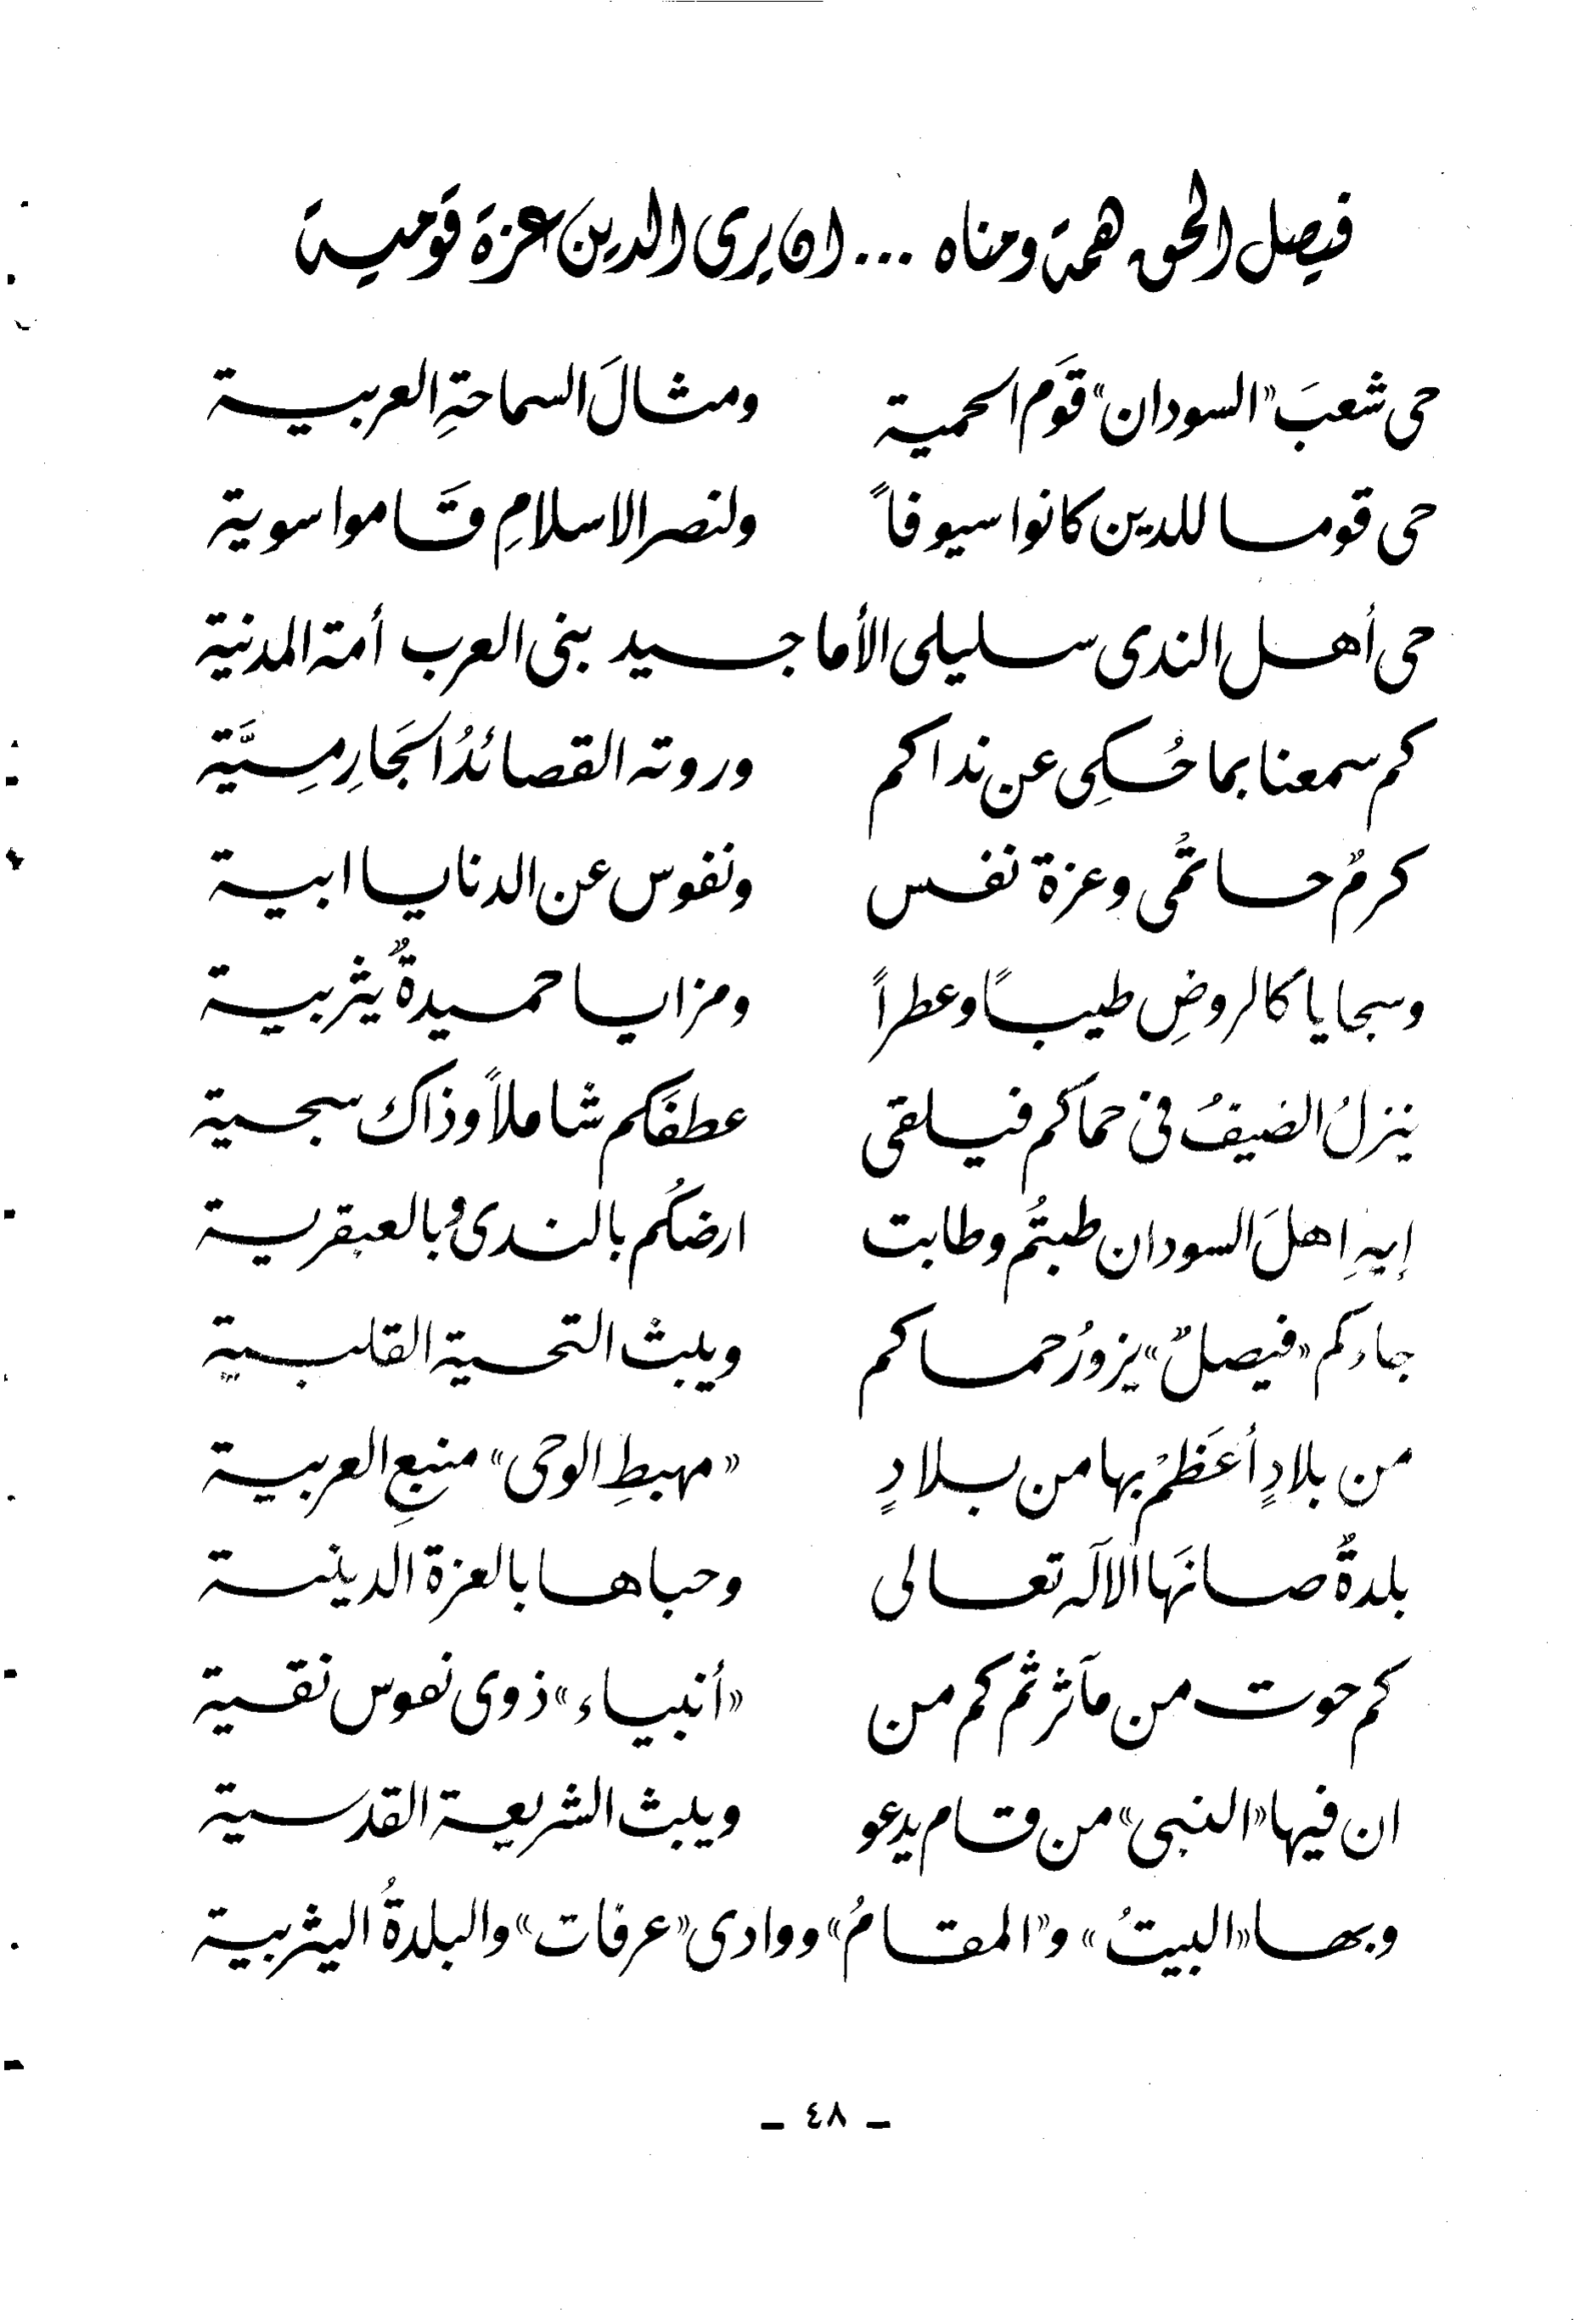 فيصل الحق همة ومناه ... ان يرى الدين عزة قومية
حى شعبَ «السودان» قوَم الحمية ومثالَ السماحةِ العربية
حى قوما للدين كانوا سيوفاً ولنصر الاسلامِ قَاموا سوية
حى أهل الندى سليلى الأماجيد بنى العرب أمة المدنية
كم سمعنا بما حُكِى عن نداكم وروته القصائدُ الَجارِمِيَّة
كرمٌ حاتمُى وعزة نفس ونفوس عن الدنايا ابية
وسجايا كالروضِ طيباً وعطراً ومزايا حميدةٌ يثربية
ينزلُ الضيفُ فى حماكم فيلقى عطفَكم شاملاً وذاك سجية
إيهِ اهلَ السودان طبتُم وطابت ارضكُم بالندى وبالعبقرية
جاءكم «فيصلٌ» يزورُ حماكم ويبثُ التحية القلبية
من بلادٍ أعَظمْ بها من بلادٍ «مهبطِ الوحى» منبعِ العربية
بلدةٌ صانَها الآله تعالى وحباها بالعزة الدينية
كم حوت من مآثر ثم كم من «أنبياء» ذوى نفوس نقية
ان فيها «النبى» من قام يدعو ويبث الشريعة القدسية
وبها «البيتُ» و«المقامُ» ووادى «عرفات» والبلدةُ اليثربية
ـ ٤٨ ـ